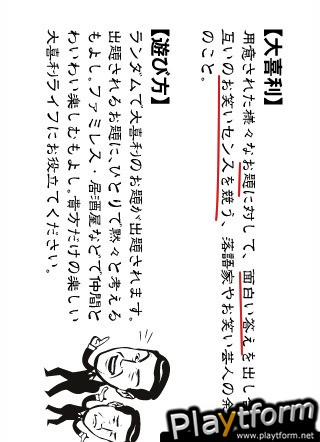 【大喜利】
用意された様々なお題に対して、面白い答えを出し
互いのお笑いセンスを競う、落語家やお笑い芸人の余
のこと。
【遊び方】
ランダムで大喜利のお題が出題されます。
出題されるお題に、ひとりで黙々と考える
もよし。ファミレス・居酒屋などで仲間と
わいわい楽しむもよし。貴方だけの楽しい
大喜利ライフにお役立てください。
Playtform
www.playtform.net